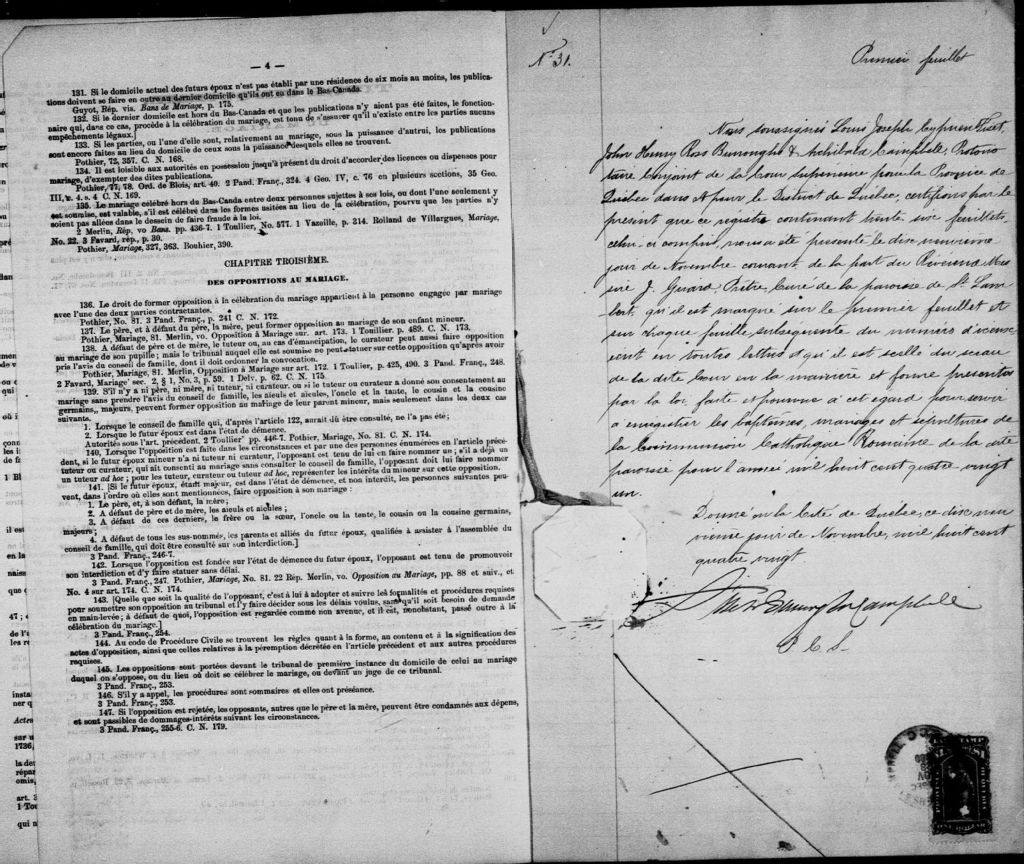 — 4 —
131. Si le domicile actuel des futurs époux n'est pas établi par une résidence de six mois au moins, les publica-
tions doivent se faire en outre au dernier domicile qu'ils ont eu dans le Bas-Canada.
Guyot, Rép. vis. Bans de Mariage, p. 175.
132. Si le dernier domicile est hors du Bas-Canada et que les publications n'y aient pas été faites, le fonction-
naire qui, dans ce cas, procède à la célébration du mariage, est tenu de s'assurer qu'il n'existe entre les parties aucun
empêchements légaux.]
133. Si les parties, ou l'une d'elle sont, relativement au mariage, sous la puissance d'autrui, les publications
sont encore faites au lieu du domicile de ceux sous la puissance desquels elles se trouvent.
Pothier, 72, 357. C. N. 168.
134. Il est loisible aux autorités en possession jusqu'à présent du droit d'accorder des licences ou dispenses pour
mariage, d'exempter des dites publications.
Pothier, 77, 78. Ord. de Blois, art. 40. 2 Pand. Franç., 324. 4 Geo. IV, c. 76 en plusieurs sections, 35 Geo.
III, c. 4. s. 4 C. N. 169.
135. Le mariage célébré hors du Bas-Canada entre deux personnes sujettes à ses lois, ou dont l'une seulement y
est soumise, est valable, s'il est célébré dans les formes usitées au lieu de la célébration, pourvu que les parties n'y
soient pas allées dans le dessein de faire fraude à la loi.
2 Merlin, Rép, vo Bans. pp. 436-7. 1 Toullier, No. 577. 1 Vazeille, p. 314. Rolland de Villargues, Mariage,
No. 22. 3 Favard, rép., p. 30.
Pothier, Mariage, 327, 363. Bouhier, 390.
CHAPITRE TROISIÈME.
DES OPPOSITIONS AU MARIAGE.
136. Le droit de former opposition à la célébration du mariage appartient à la personne engagée par mariage
avec l'une des deux parties contractantes.
Pothier, No. 81. 3 Pand. Franç., p. 241 C. N. 172.
137. Le père, et à défaut du père, la mère, peut former opposition au mariage de son enfant mineur.
Pothier, Mariage, 81. Merlin, vo. Opposition à Mariage sur. art. 173. 1 Touillier. p. 489. C. N. 173.
138. A défaut de père et de mère, le tuteur ou, au cas d'émancipation, le curateur peut aussi faire opposition
au mariage de son pupille; mais le tribunal auquel elle est soumise ne peut statuer sur cette opposition qu'après avoir
pris l'avis du conseil de famille, dont il doit ordonner la convocation.
Pothier, Mariage, 81. Merlin, Opposition à Mariage sur art. 172. 1 Toullier, p. 425, 490. 3 Pand. Franç., 248.
2 Favard, Mariage sec. 2, § 1, No. 3, p. 59. 1 Delv. p. 62. C. N. 175.
139. S'il n'y a ni père, ni mère, ni tuteur, ni curateur, ou si le tuteur ou curateur a donné son consentement au
mariage sans prendre l'avis du conseil de famille, les aïeuls et aïeules, l'oncle et la tante, le cousin et la cousine
germains, majeurs, peuvent former opposition au mariage de leur parent mineur, mais seulement dans les deux cas
suivants.
1. Lorsque le conseil de famille qui, d'après l'article 122, aurait dû être consulté, ne l'a pas été;
2. Lorsque le futur époux est dans l'état de démence.
Autorités sous l'art. précédent. 2 Toullier pp. 446-7. Pothier, Mariage, No. 81. C. N. 174.
140, Lorsque l'opposition est faite dans les circonstances et par une des personnes énumérées en l'article précé-
dent, si le futur époux mineur n'a ni tuteur ni curateur, l'opposant est tenu de lui en faire nommer un; s'il a déjà un
tuteur ou curateur, qui ait consenti au mariage sans consulter le conseil de famille, l'opposant doit lui faire nommer
un tuteur ad hoc; pour les tuteur, curateur ou tuteur ad hoc, représenter les intérêts du mineur sur cette opposition.
141. [Si le futur époux, étant majeur, est dans l'état de démence, et non interdit, les personnes suivantes peu-
vent, dans l'ordre où elles sont mentionnées, faire opposition à son mariage:
1. Le père, et, à son défaut, la mère;
2. A défaut de père et de mère, les aïeuls et aïeules;
3. A défaut de ces derniers, le frère ou la sœur, l'oncle ou la tante, le cousin ou la cousine germains,
majeurs;
4. A défaut de tous les sus-nommés, les parents et alliés du futur époux, qualifiés à assister à l'assemblée du
conseil de famille, qui doit être consulté sur son interdiction.]
3 Pand. Franç., 246-7.
142. Lorsque l'opposition est fondée sur l'état de démence du futur époux, l'opposant est tenu de promouvoir
son interdiction et d'y faire statuer sans délai.
3 Pand. Franç., 247. Pothier, Mariage, No. 81. 22 Rép. Merlin, vo. Opposition au Mariage, pp. 88 et suiv., et
No. 4 sur art. 174. C. N. 174.
143. [Quelle que soit la qualité de l'opposant, c'est à lui à adopter et suivre les formalités et procédures requises
pour soumettre son opposition au tribunal et l'y faire décider sous les délais voulus, sans qu'il soit besoin de demande
en main-levée; à défaut de quoi, l'opposition est regardée comme non avenue, et il est, nonobstant, passé outre à la
célébration du mariage.]
3 Pand. Franç., 254.
144. Au code de Procédure Civile se trouvent les règles quant à la forme, au contenu et à la signification des
actes d'opposition, ainsi que celles relatives à la péremption décrétée en l'article précédent et aux autres procédures
requises.
145. Les oppositions sont portées devant le tribunal de première instance du domicile de celui au mariage
duquel on s'oppose, ou du lieu où doit se célébrer le mariage, ou devant un juge de ce tribunal.
3 Pand. Franç., 253.
146. S'il y a appel, les procédures sont sommaires et elles ont préséance.
3 Pand. Franç., 253.
147. Si l'opposition est rejetée, les opposants, autres que le père et la mère, peuvent être condamnés aux dépens,
et sont passibles de dommages-intérêts suivant les circonstances.
3 Pand. Franç., 255-6. C. N. 179.
No 31.
Premier feuillet
Nous soussignés Louis Joseph Cyprien Fiset,
John Henry Ross Burroughs & Archibald Campbell, Protono
taire Conjoint de la Cour Supérieure pour la Province de
Québec dans & pour le District de Québec, certifions par le
présent que ce registre contenant trente six feuillets,
celui-ci compris, nous a été présenté le dix neuvième
jour de Novembre courant de la part du Révérend Mes
sire J. Girard, Prêtre, Curé de la paroisse de St. Lam
bert, qu'il est marqué sur le premier feuillet et
sur chaque feuille subséquente du numéro d'icelle
écrit en toutes lettres & qu'il est scellé du sceau
de la dite Cour en la manière et forme prescrites
par la loi faite et pourvue à cet égard pour servir
à enregistrer les baptêmes, mariages et sépultures de
la Communion Catholique Romaine de la dite
paroisse pour l'année mil huit cent quatre vingt
un.
Donné en la Cité de Québec, ce dix neu
vième jour de Novembre, mil huit cent
quatre vingt
Campbell
P. C. S.
ONE DOLLAR